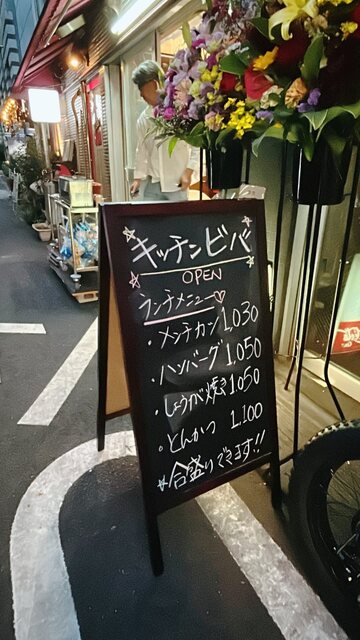 キッチンビバ
OPEN
ランチメニュー♡
・メンチカツ 1,030
・ハンバーグ 1,050
・しょうが焼き 1,050
・とんかつ 1,100
☆合盛りできます!!